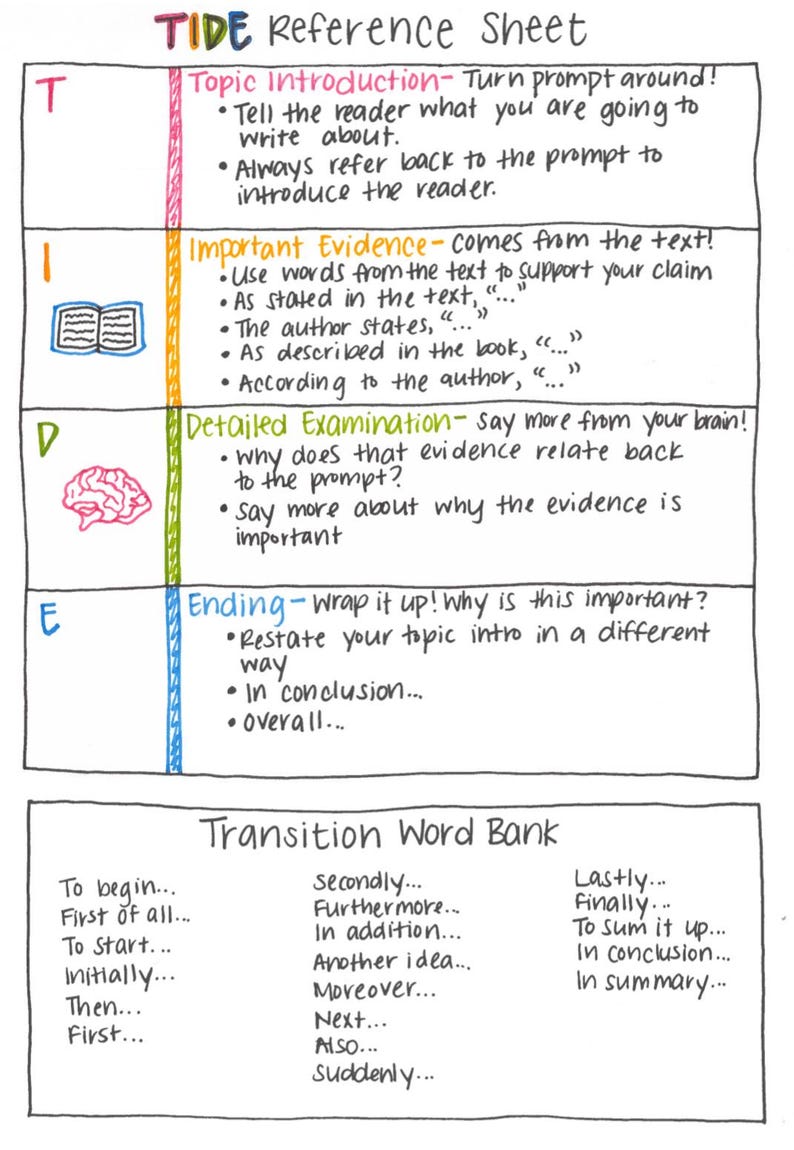 TIDE Reference Sheet
T
Topic Introduction- Turn prompt around!
• Tell the reader what you are going to
write about.
• Always refer back to the prompt to
introduce the reader.
I
Important Evidence- comes from the text!
• Use words from the text to support your claim
• As stated in the text, "..."
• The author states, "..."
• As described in the book, "..."
• According to the author, "..."
D
Detailed Examination- say more from your brain!
• Why does that evidence relate back
to the prompt?
• Say more about why the evidence is
important
E
Ending- Wrap it up! Why is this important?
• Restate your topic intro in a different
way
• In conclusion...
• Overall...
Transition Word Bank
To begin...
First of all...
To start...
Initially...
Then...
First...
Secondly...
Furthermore...
In addition...
Another idea...
Moreover...
Next...
Also...
Suddenly...
Lastly...
Finally...
To sum it up...
In conclusion...
In summary...